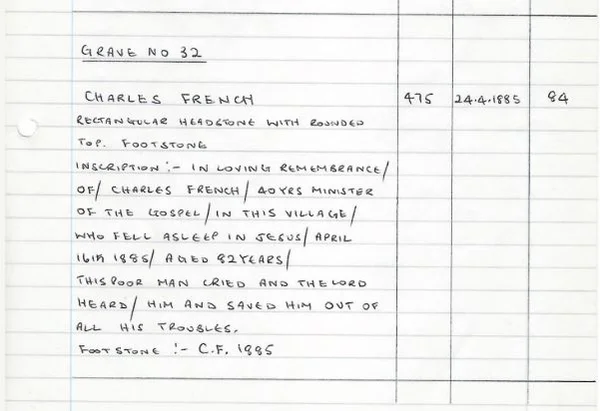 GRAVE NO 32
CHARLES FRENCH 475 24.4.1885 84
RECTANGULAR HEADSTONE WITH ROUNDED
TOP. FOOTSTONE
INSCRIPTION :- IN LOVING REMEMBRANCE/
OF/ CHARLES FRENCH/ 40YRS MINISTER
OF THE GOSPEL/ IN THIS VILLAGE/
WHO FELL ASLEEP IN JESUS/ APRIL
16th 1885/ AGED 82 YEARS/
THIS POOR MAN CRIED AND THE LORD
HEARD/ HIM AND SAVED HIM OUT OF
ALL HIS TROUBLES.
FOOTSTONE :- C.F. 1885